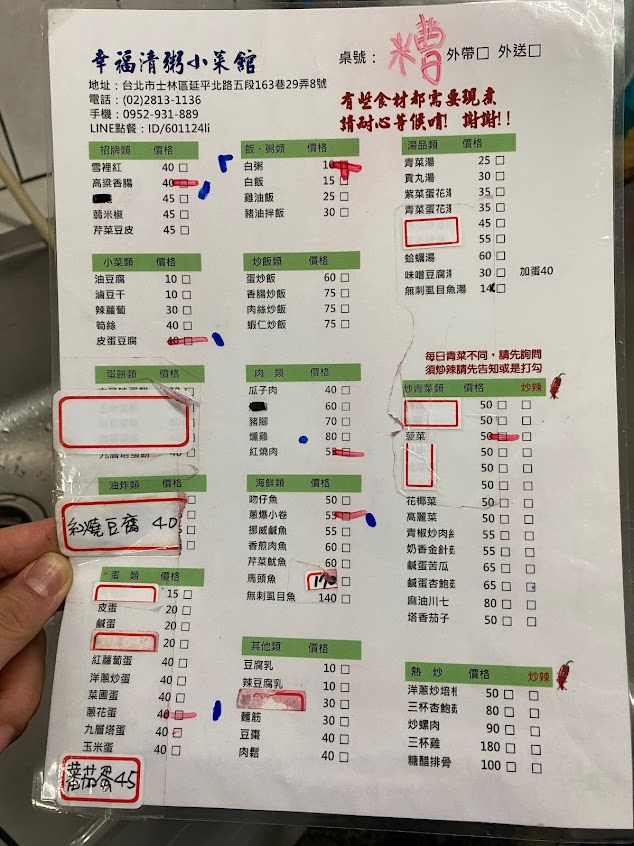 幸福清粥小菜館
地址：台北市士林區延平北路五段163巷29弄8號
電話：(02)2813-1136
手機：0952-931-889
LINE點餐：ID/601124li
桌號： 糟 外帶□ 外送□
有些食材都需要現煮
請耐心等候唷! 謝謝!!
招牌類 價格
雪裡紅 40 □
高粱香腸 40
45 □
蒟米椒 45 □
芹菜豆皮 45 □
小菜類 價格
油豆腐 10 □
滷豆干 10 □
辣蘿蔔 30 □
筍絲 40 □
皮蛋豆腐 40 □
蛋餅類 價格
九層塔蛋餅
油炸類 價格
紅燒豆腐 40
蛋 類 價格
15 □
皮蛋 20 □
鹹蛋 20 □
20 □
紅蘿蔔蛋 40 □
洋蔥炒蛋 40 □
菜圃蛋 40 □
蔥花蛋 40 □
九層塔蛋 40 □
玉米蛋 40 □
蕃茄蛋45
飯、粥類 價格
白粥 10
白飯 15 □
雞油飯 25 □
豬油拌飯 30 □
炒飯類 價格
蛋炒飯 60 □
香腸炒飯 75 □
肉絲炒飯 75 □
蝦仁炒飯 75 □
肉 類 價格
瓜子肉 40 □
60 □
豬腳 70 □
燻雞 80 □
紅燒肉 55 □
海鮮類 價格
吻仔魚 50 □
蔥爆小卷 55 □
挪威鹹魚 55 □
香煎肉魚 60 □
芹菜魷魚 60 □
馬頭魚 170 □
無刺虱目魚 140 □
其他類 價格
豆腐乳 10 □
辣豆腐乳 10 □
30 □
麵筋 30 □
豆棗 40 □
肉鬆 40 □
湯品類 價格
青菜湯 25 □
貢丸湯 30 □
紫菜蛋花湯 35 □
青菜蛋花湯 35 □
45 □
55 □
蛤蠣湯 60 □
味噌豆腐湯 30 □ 加蛋40
無刺虱目魚湯 14
每日青菜不同，請先詢問
須炒辣請先告知或是打勾
炒青菜類 價格 炒辣
50 □ □
50 □ □
菠菜 50 □ □
50 □ □
50 □ □
50 □ □
花椰菜 50 □ □
高麗菜 50 □ □
青椒炒肉絲 55 □ □
奶香金針菇 55 □ □
鹹蛋苦瓜 65 □ □
鹹蛋杏鮑菇 65 □ □
麻油川七 80 □ □
塔香茄子 50 □ □
熱 炒 價格 炒辣
洋蔥炒培根 50 □ □
三杯杏鮑菇 80 □ □
炒螺肉 90 □ □
三杯雞 180 □ □
糖醋排骨 100 □ □